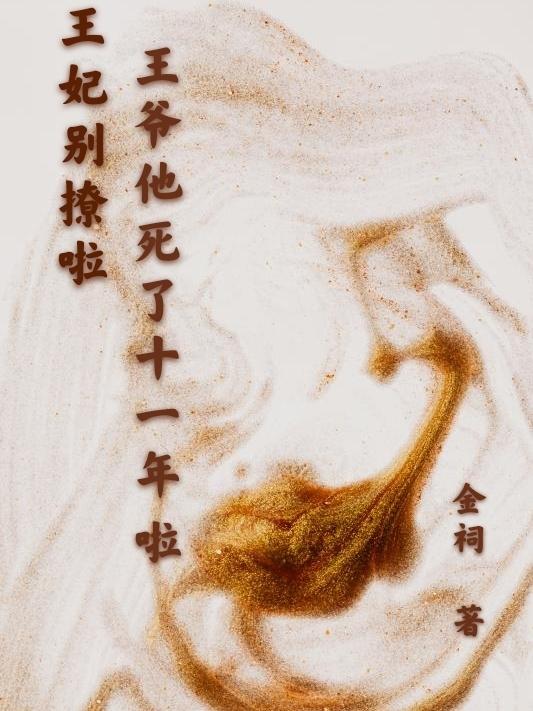 王妃别撩啦
王爷他死了十一年啦
金祠 著